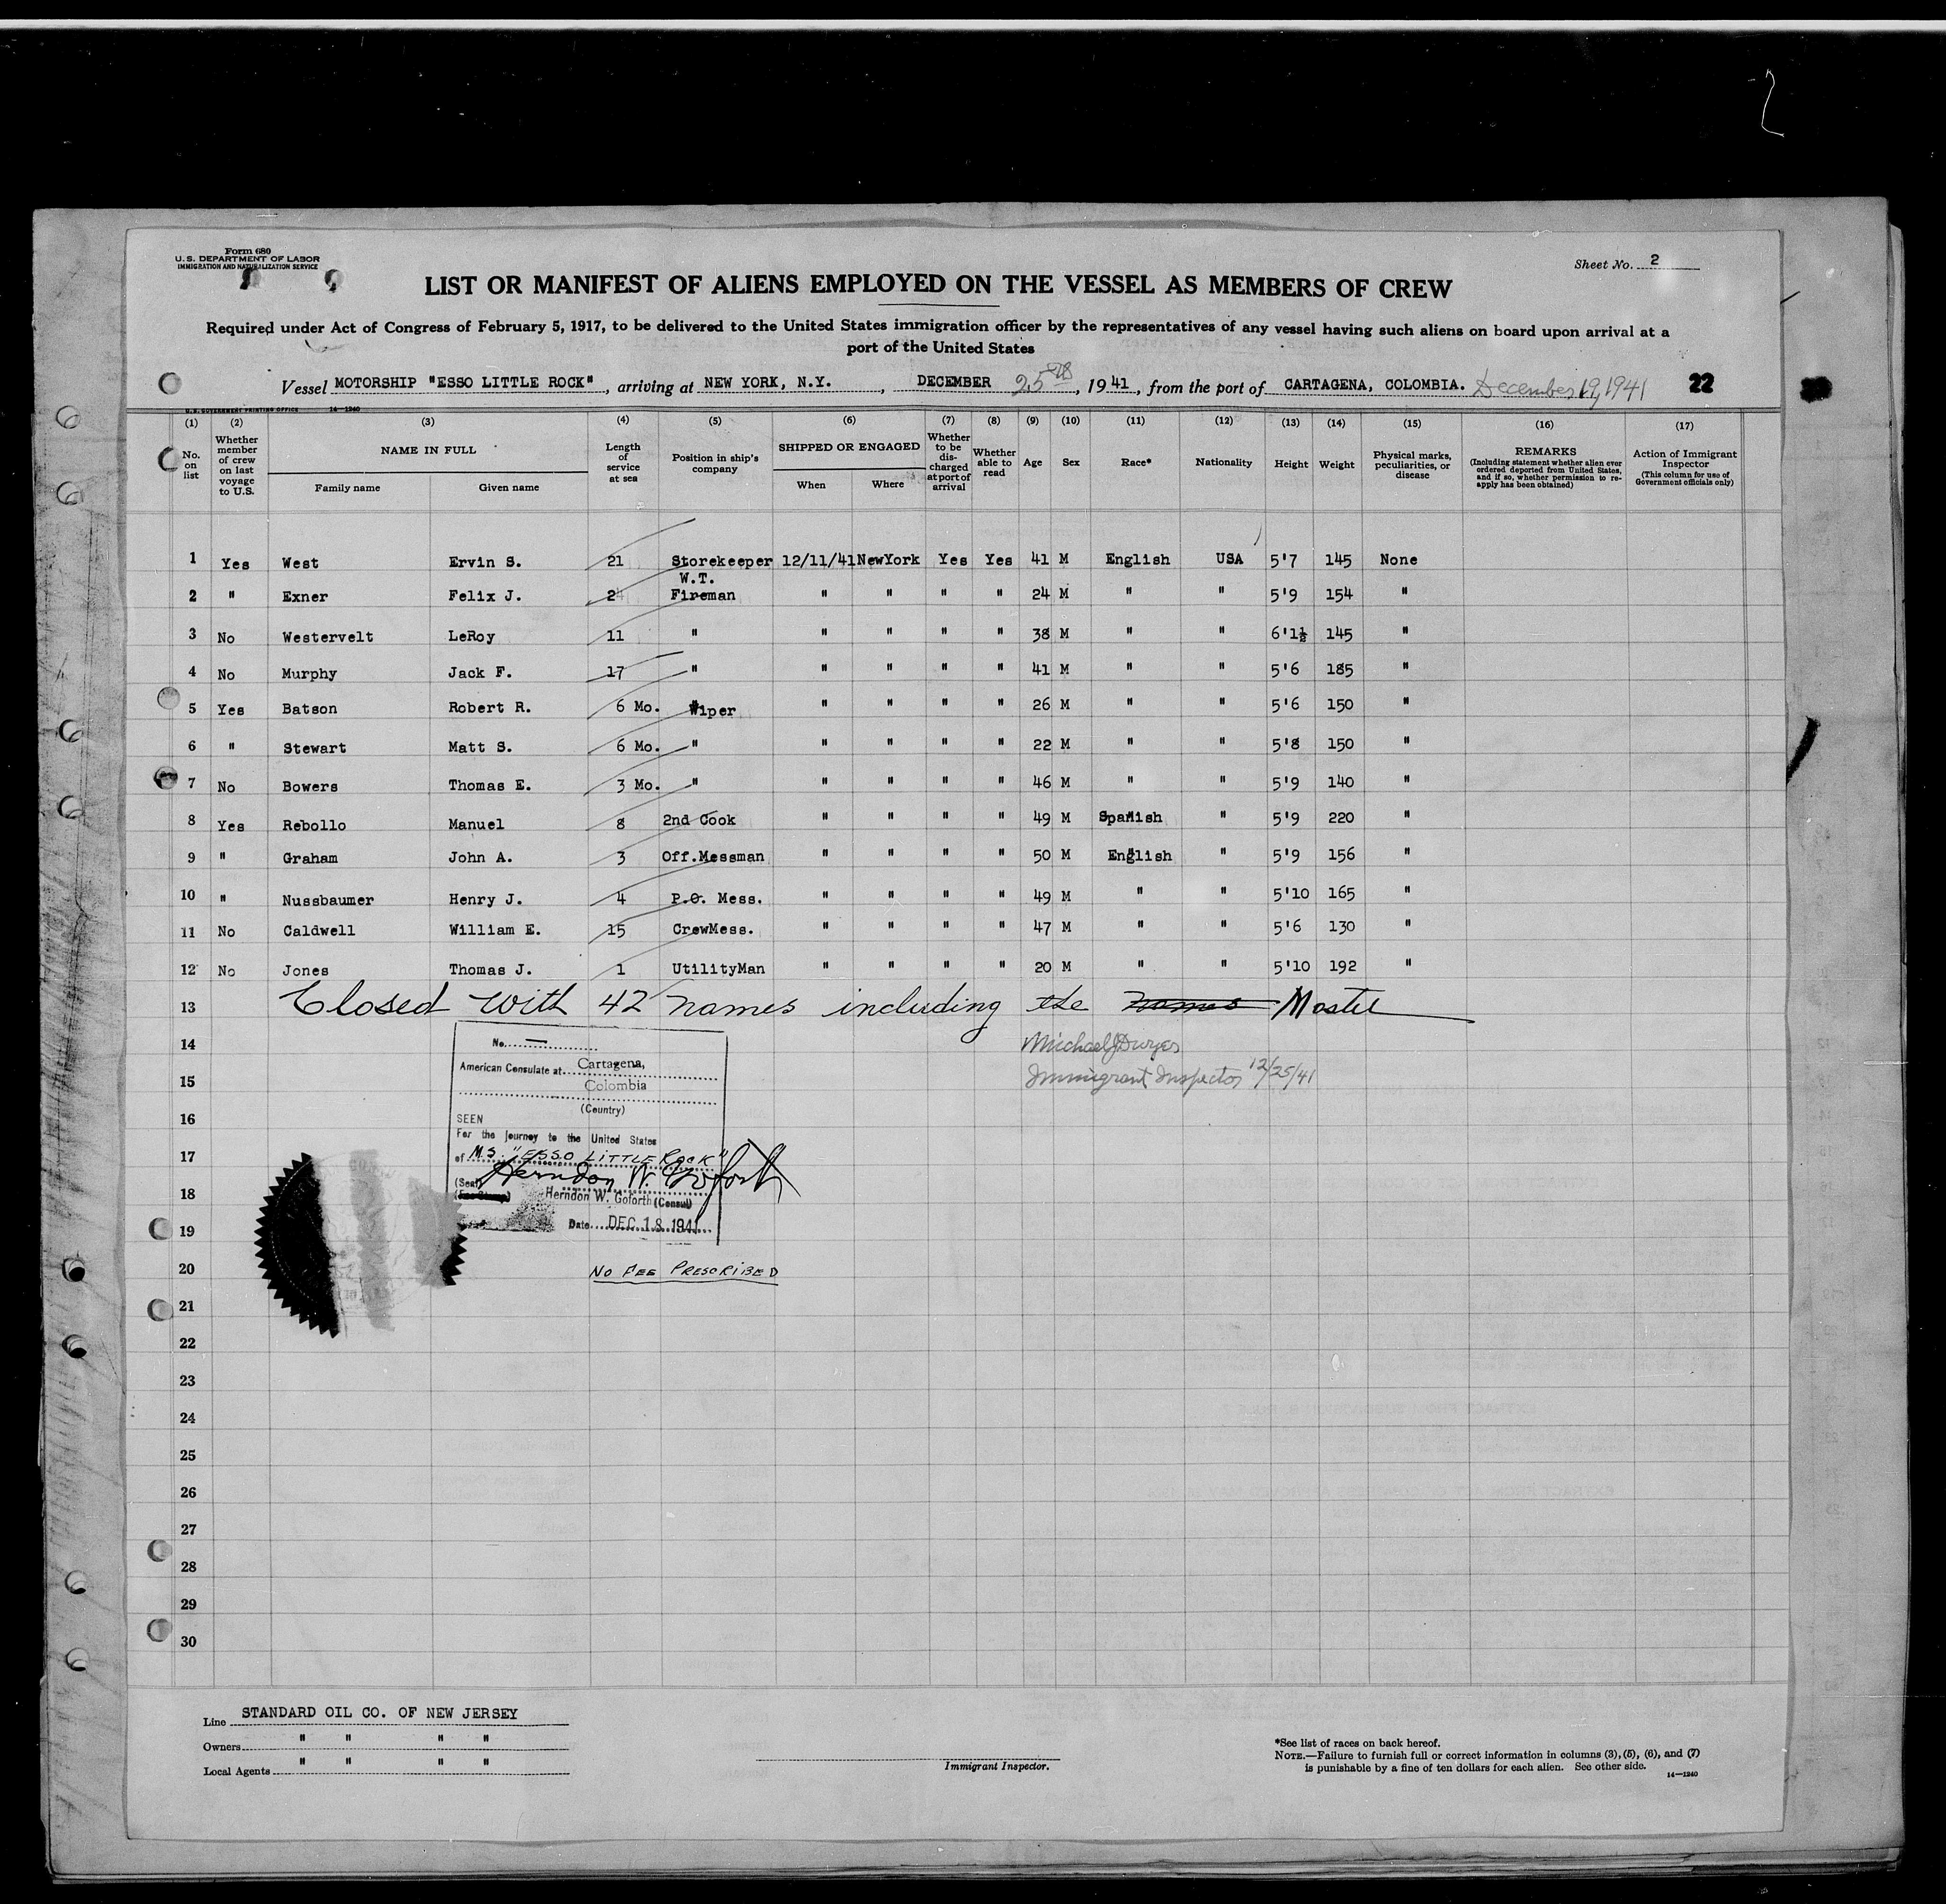 Form 680
U. S. DEPARTMENT OF LABOR
IMMIGRATION AND NATURALIZATION SERVICE
Sheet No. 2
LIST OR MANIFEST OF ALIENS EMPLOYED ON THE VESSEL AS MEMBERS OF CREW
Required under Act of Congress of February 5, 1917, to be delivered to the United States immigration officer by the representatives of any vessel having such aliens on board upon arrival at a
port of the United States
Vessel MOTORSHIP "ESSO LITTLE ROCK", arriving at NEW YORK, N.Y., DECEMBER 25th, 1941, from the port of CARTAGENA, COLOMBIA. December 19, 1941 22
U. S. GOVERNMENT PRINTING OFFICE 14—1240
(1) (2) (3) (4) (5) (6) (7) (8) (9) (10) (11) (12) (13) (14) (15) (16) (17)
No. on list
Whether member of crew on last voyage to U.S.
NAME IN FULL
Family name Given name
Length of service at sea
Position in ship's company
SHIPPED OR ENGAGED
When Where
Whether to be discharged at port of arrival
Whether able to read
Age Sex Race* Nationality Height Weight
Physical marks, peculiarities, or disease
REMARKS
(Including statement whether alien ever ordered deported from United States, and if so, whether permission to reapply has been obtained)
Action of Immigrant Inspector
(This column for use of Government officials only)
1 Yes West Ervin S. 21 Storekeeper 12/11/41 NewYork Yes Yes 41 M English USA 5'7 145 None
W.T.
2 " Exner Felix J. 24 Fireman " " " " 24 M " " 5'9 154 "
3 No Westervelt LeRoy 11 " " " " " 38 M " " 6'1½ 145 "
4 No Murphy Jack F. 17 " " " " " 41 M " " 5'6 185 "
5 Yes Batson Robert R. 6 Mo. Wiper " " " " 26 M " " 5'6 150 "
6 " Stewart Matt S. 6 Mo. " " " " " 22 M " " 5'8 150 "
7 No Bowers Thomas E. 3 Mo. " " " " " 46 M " " 5'9 140 "
8 Yes Rebollo Manuel 8 2nd Cook " " " " 49 M Spanish " 5'9 220 "
9 " Graham John A. 3 Off.Messman " " " " 50 M English " 5'9 156 "
10 " Nussbaumer Henry J. 4 P.O. Mess. " " " " 49 M " " 5'10 165 "
11 No Caldwell William E. 15 CrewMess. " " " " 47 M " " 5'6 130 "
12 No Jones Thomas J. 1 UtilityMan " " " " 20 M " " 5'10 192 "
13 Closed with 42 names including the names Master
14 Michael J Dwyer
15 Immigrant Inspector 12/25/41
No. —
American Consulate at Cartagena,
Colombia
(Country)
16
SEEN
For the journey to the United States
17
of M.S. "ESSO LITTLE ROCK"
Herndon W. Goforth
(Seal)
18
Herndon W. Goforth (Consul)
19
Date DEC 18 1941
20
NO FEE PRESCRIBED
21
22
23
24
25
26
27
28
29
30
Line STANDARD OIL CO. OF NEW JERSEY
Owners " " " "
Local Agents " " " "
Immigrant Inspector.
*See list of races on back hereof.
NOTE.—Failure to furnish full or correct information in columns (3), (5), (6), and (7)
is punishable by a fine of ten dollars for each alien. See other side.
14—1240